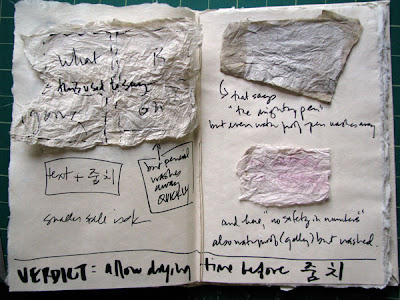 What
that used to say
on
text + 줌치
but pencil
washes
away
QUICKLY
smaller scale
that says
"the mighty pen"
but even waterproof pen washes away
and here, "no safety in numbers"
also waterproof (gelly) but washed.
VERDICT: allow drying time before 줌치